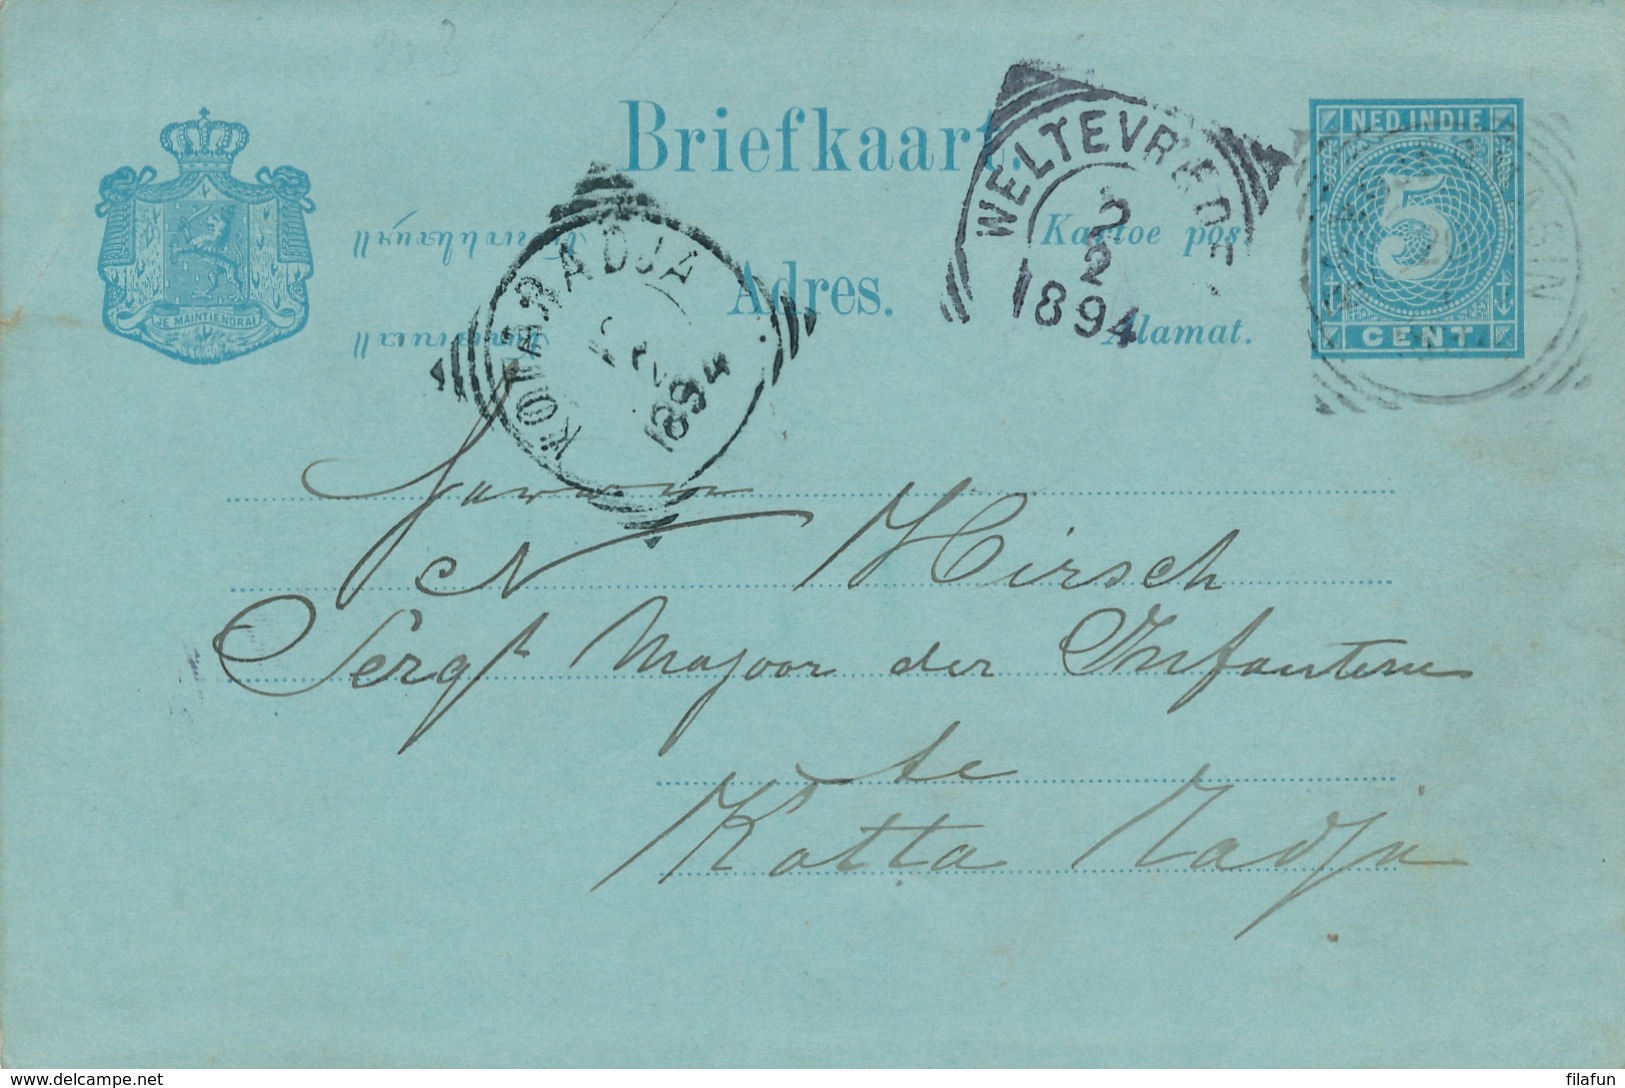 Briefkaart.
Kartoe pos.
Adres.
Alamat.
JE MAINTIENDRAI
NED. INDIE
5
CENT
WELTEVREDEN
2
2
1894
KOTARADJA
1894
N Hirsch
Sergt Majoor der Infanterie
te
Kotta Radja
www.delcampe.net
filafun